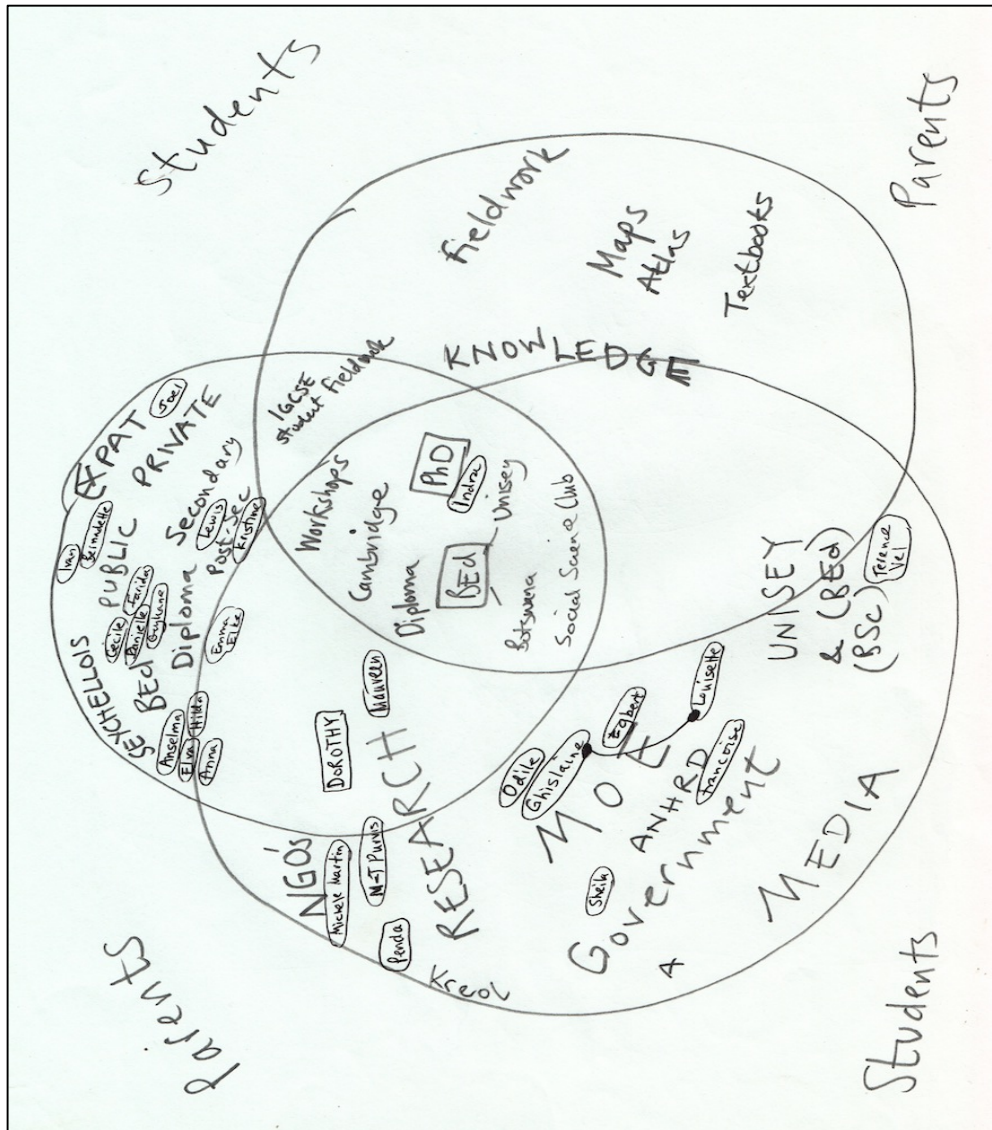 Students
Parents
Fieldwork
Maps
Atlas
Textbooks
KNOWLEDGE
IGCSE
Student fieldwork
EXPAT
Joel
PRIVATE
Ivan
Bernadette
PUBLIC
Secondary
Lewis
Post-Sec
Kristine
SEYCHELLOIS
Cécile
Farida
Danielle
Guylaine
BEd
Diploma
Emma
Elke
Anselma
Elva
Hilda
Anna
Workshops
Cambridge
Diploma
PhD
Indra
BEd
Unisey
Botswana
Social Science Club
DOROTHY
Maureen
RESEARCH
NGO's
Michele Martin
M-T Purvis
Penda
Kreol
Odile
Ghislaine
Egbert
Louisette
MOE
ANHRD
Francoise
Sheila
Government
A
MEDIA
UNISEY
& (BEd)
(BSc)
Terence
Vel
Parents
Students